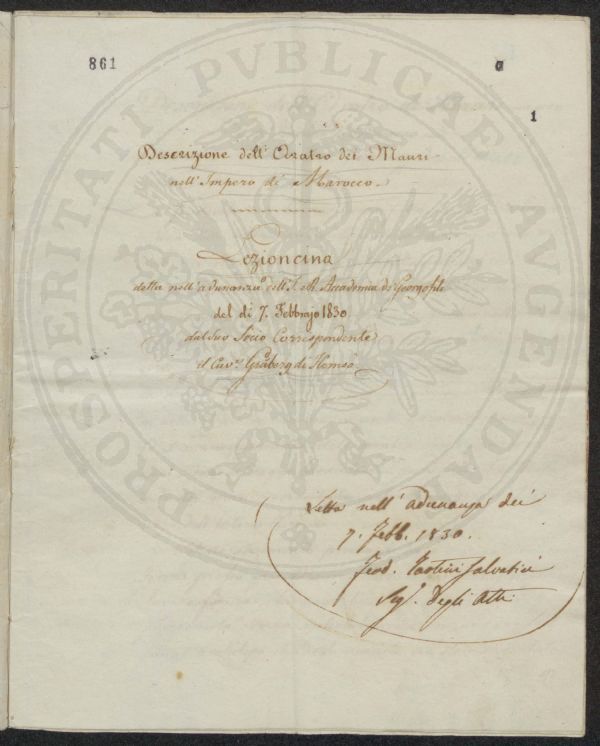 861
a
1
PROSPERITATI PVBLICAE AVGENDAE
Descrizione dell'Aratro dei Mauri
nell'Impero di Marocco.
Lezioncina
detta nell'adunanza dell'I. R. Accademia de' Georgofili
del dì 7. Febbrajo 1830
dal suo Socio Corrispondente
il Cav.e Gråberg di Hemsö.
Letta nell'adunanza dei
7. Febb. 1830.
Ferd. Tartini Salvatici
Seg. degli Atti